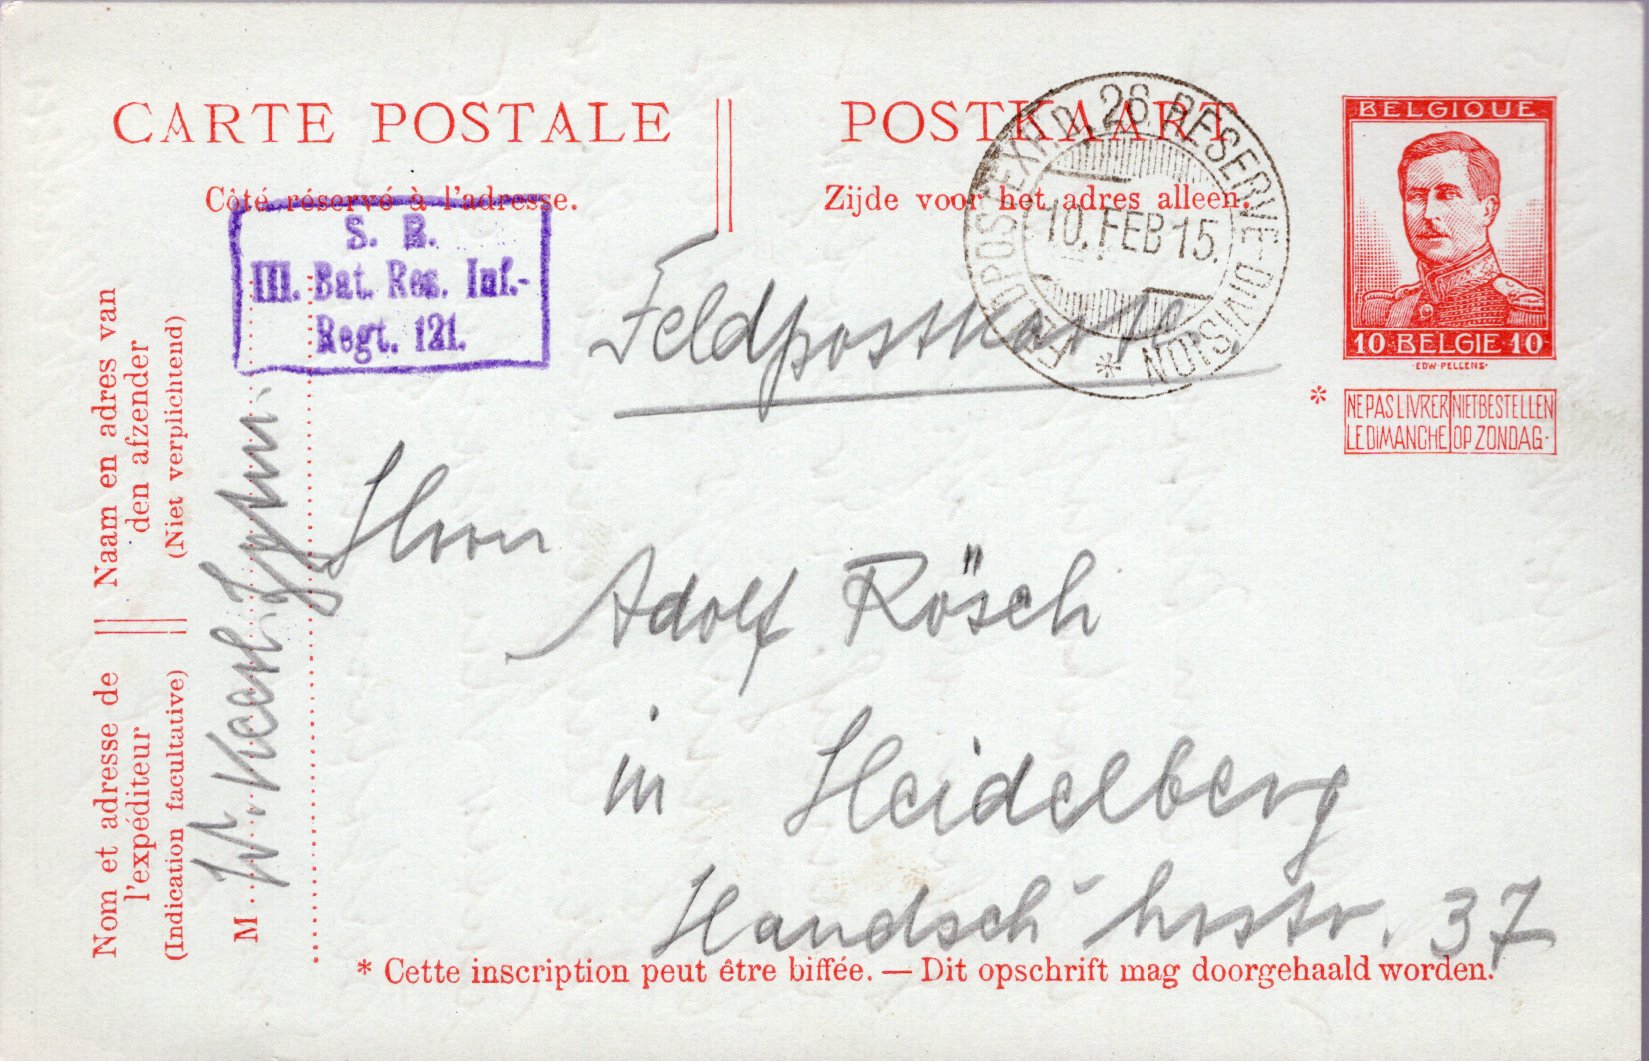 CARTE POSTALE
POSTKAART
Côté réservé à l'adresse.
Zijde voor het adres alleen.
FELDPOSTEXPED. 26. RESERVE-DIVISION *
10. FEB 15.
BELGIQUE
10 BELGIE 10
·EDW·PELLENS·
*
NE PAS LIVRER LE DIMANCHE
NIET BESTELLEN OP ZONDAG·
S. B.
III. Bat. Res. Inf.-
Regt. 121.
Feldpostkarte
Herrn
Adolf Rösch
in Heidelberg
Handsch-hrstr. 37
Naam en adres van
den afzender
(Niet verplichtend)
Nom et adresse de
l'expéditeur
(Indication facultative)
M
W.
* Cette inscription peut être biffée. — Dit opschrift mag doorgehaald worden.